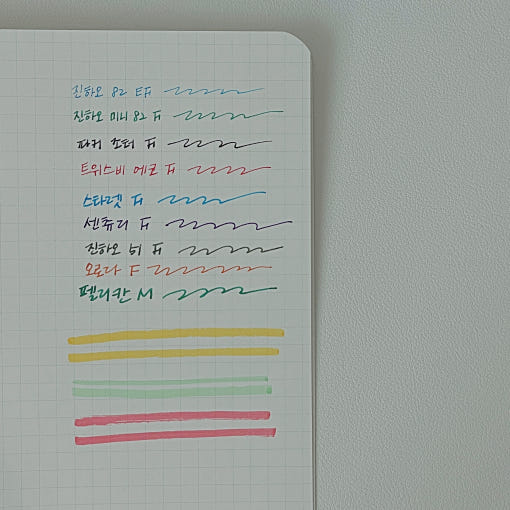 진하오 82 EF
진하오 미니 82 F
파커 조터 F
트위스비 에코 F
스타렛 F
센츄리 F
진하오 51 F
오로라 F
펠리칸 M